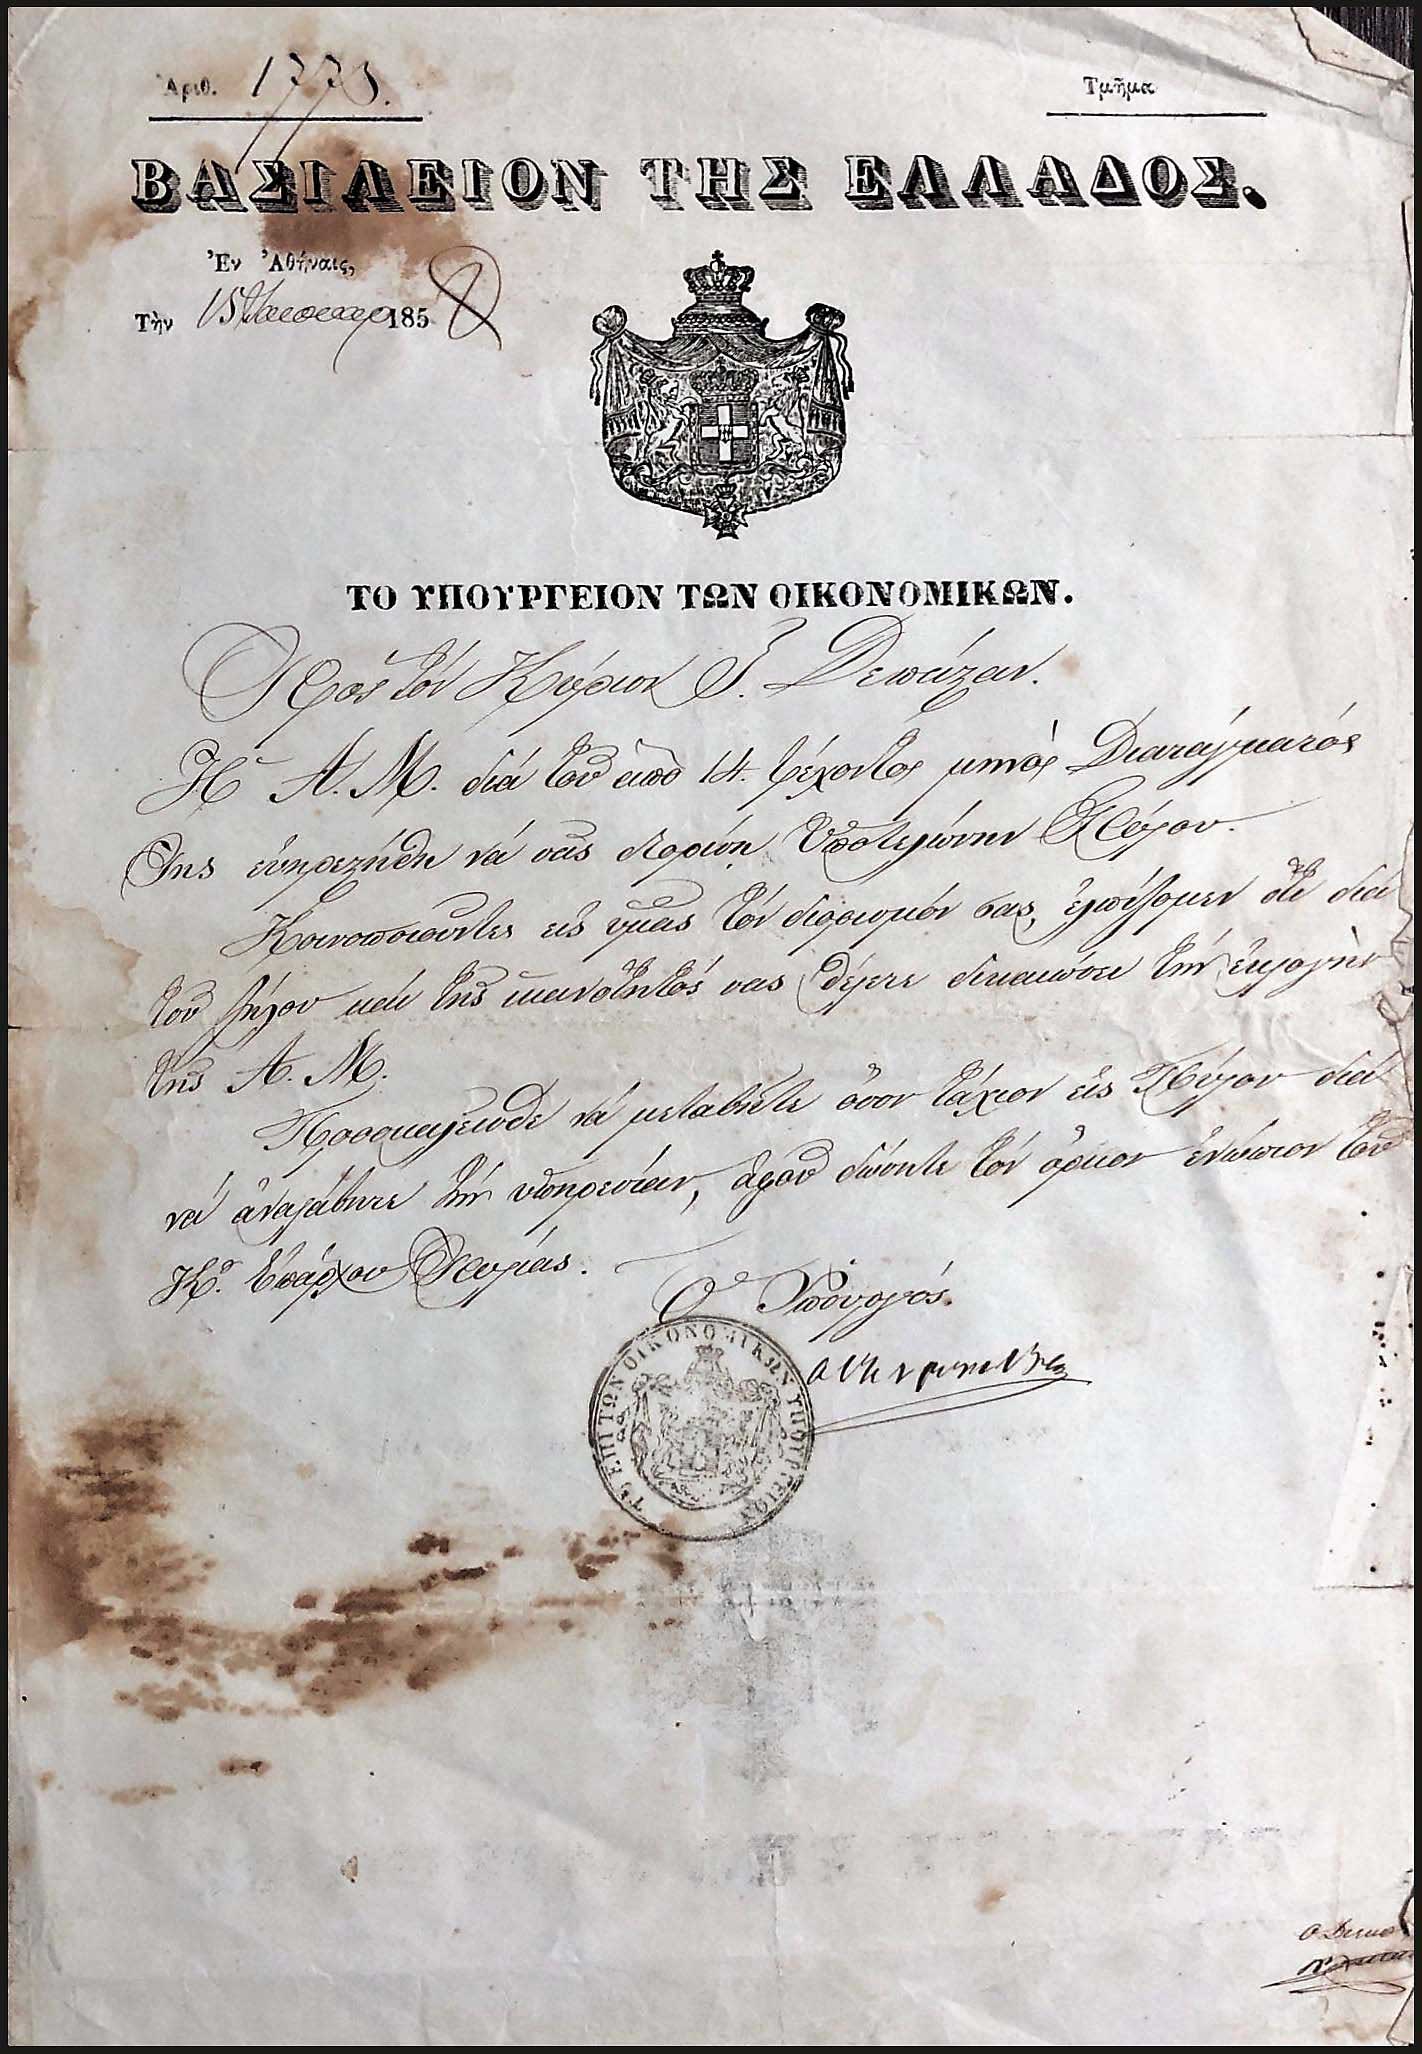 Ἀριθ. 1773.
Τμῆμα
ΒΑΣΙΛΕΙΟΝ ΤΗΣ ΕΛΛΑΔΟΣ.
Ἐν Ἀθήναις,
Τὴν 15 Ἰανουαρ 1858
ΤΟ ΥΠΟΥΡΓΕΙΟΝ ΤΩΝ ΟΙΚΟΝΟΜΙΚΩΝ.
Πρός τόν Κύριον Ι. Δεπάζαν.
Ἡ Α. Μ. διά τοῦ ἀπό 14. τρέχοντος μηνός Διατάγματός
Της εὐηρεστήθη νά σᾶς διορίσῃ Ὑποτελώνην Πύλου.
Κοινοποιοῦντες εἰς ὑμᾶς τόν διορισμόν σας, ἐλπίζομεν ὅτι διά
τοῦ ζήλου καί τῆς ἱκανότητός σας θέλετε δικαιώσει τήν ἐκλογὴν
τῆς Α. Μ.
Προσκαλεῖσθε νά μεταβῆτε ὅσον τάχιον εἰς Πύλον διά
νά ἀναλάβητε τήν ὑπηρεσίαν, ἀφοῦ δώσητε τόν ὅρκον ἐνώπιον τοῦ
Κου Ἐπάρχου Πυλίας.
Ὁ Ὑπουργός.
ΤΟ ΕΠΙ ΤΩΝ ΟΙΚΟΝΟΜΙΚΩΝ ΥΠΟΥΡΓΕΙΟΝ